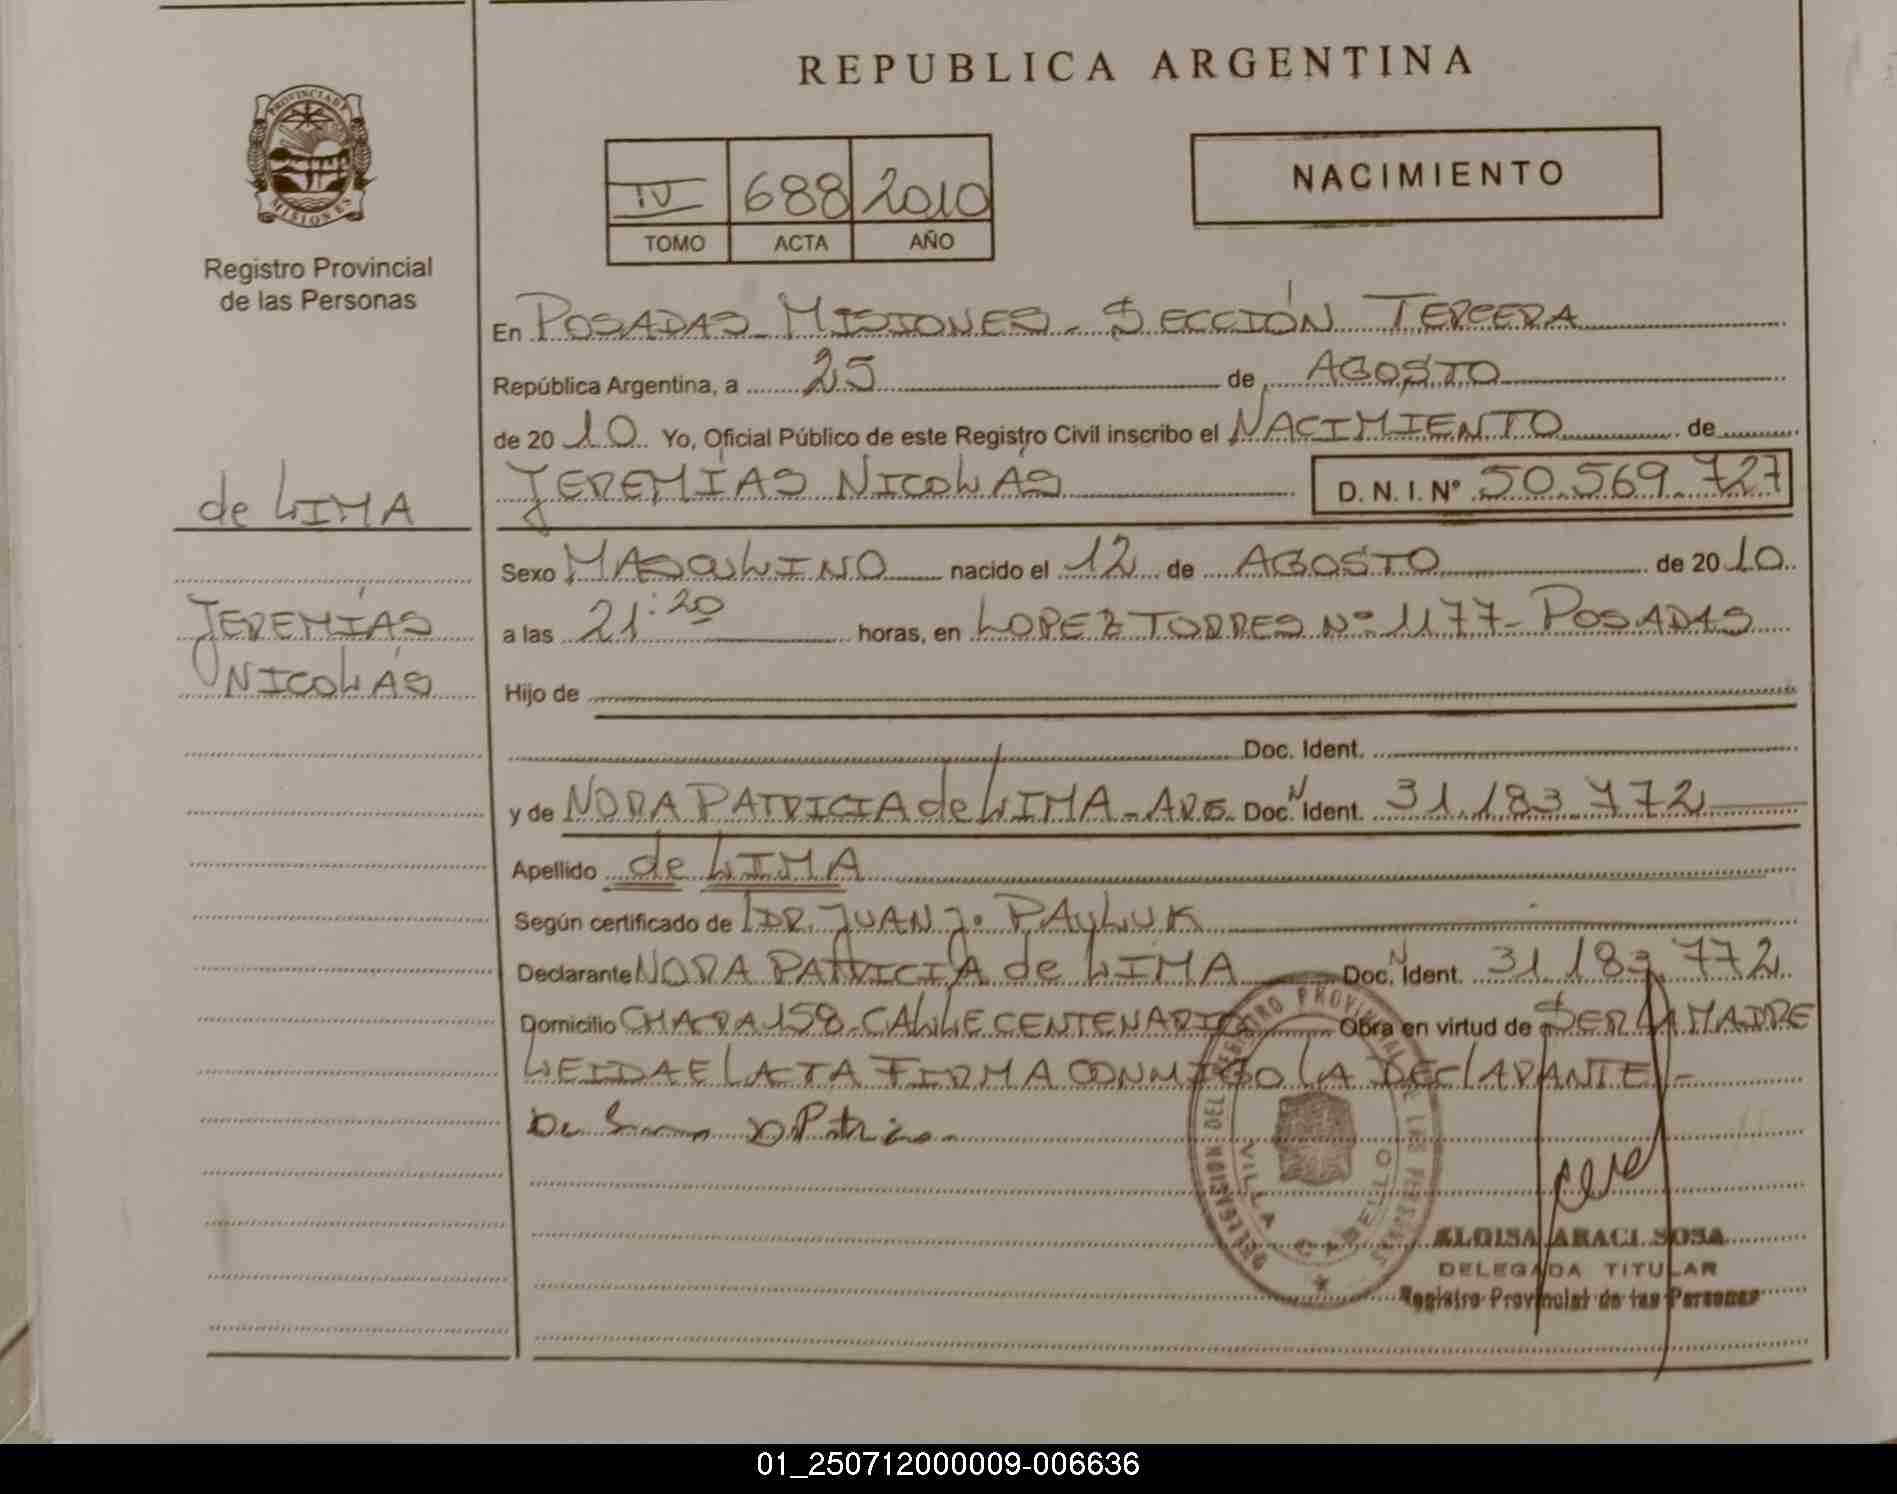 REPUBLICA ARGENTINA
PROVINCIA DE
MISIONES
Registro Provincial
de las Personas
IV 688 2010
TOMO ACTA AÑO
NACIMIENTO
En POSADAS - MISIONES - SECCIÓN TERCERA
República Argentina, a 25 de AGOSTO
de 2010 Yo, Oficial Público de este Registro Civil inscribo el NACIMIENTO de
JEREMÍAS NICOLÁS D. N. I. Nº 50.569.727
de LIMA
JEREMÍAS
NICOLÁS
Sexo MASCULINO nacido el 12 de AGOSTO de 2010
a las 21:20 horas, en LOPEZ TORRES Nº 1177 - POSADAS
Hijo de
Doc. Ident.
y de NORA PATRICIA de LIMA - ARG. Doc. N Ident. 31.183.772
Apellido de LIMA
Según certificado de DR. JUAN J. PAYLUK
Declarante NORA PATRICIA de LIMA Doc. N Ident. 31.183.772
Domicilio CHACRA 158 - CALLE CENTENARIO Obra en virtud de SER LA MADRE
LEIDA EL ACTA FIRMA CONMIGO LA DECLARANTE -
DELEGACION DEL REGISTRO PROVINCIAL DE LAS PERSONAS
VILLA CABELLO
ELOISA ARACI SOSA
DELEGADA TITULAR
Registro Provincial de las Personas
01_250712000009-006636